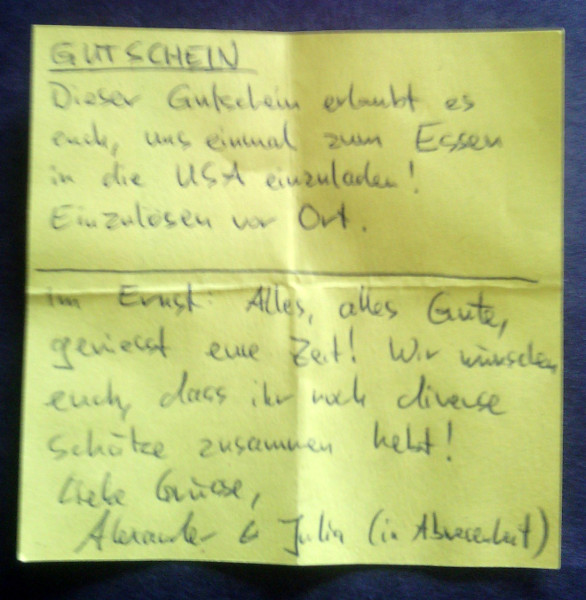 GUTSCHEIN
Dieser Gutschein erlaubt es
euch, uns einmal zum Essen
in die USA einzuladen!
Einzulösen vor Ort.
Im Ernst: Alles, alles Gute,
geniesst eure Zeit! Wir wünschen
euch, dass ihr noch diverse
Schätze zusammen hebt!
Liebe Grüsse,
Alexander & Julia (in Abwesenheit)